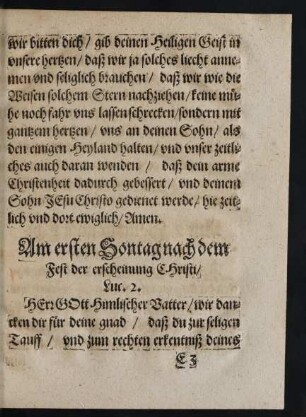 wir bitten dich / gib deinen Heiligen Geist in
vnsere hertzen / daß wir ja solches liecht anne-
men vnd seliglich brauchen / daß wir wie die
Weisen solchem Stern nachziehen / keine mü-
he noch fahr vns lassen schrecken / sondern mit
gantzem hertzen / vns an deinen Sohn / als
den einigen Heyland halten / vnd vnser zeitli-
ches auch daran wenden / daß dein arme
Christenheit dadurch gebessert / vnd deinem
Sohn JEsu Christo gedienet werde / hie zeit-
lich vnd dort ewiglich / Amen.
Am ersten Sontag nach dem
Fest der erscheinung CHristi /
Luc. 2.
HErr GOtt Himlischer Vatter / wir dan-
cken dir für deine gnad / daß du zur seligen
Tauff / vnd zum rechten erkentniß deines